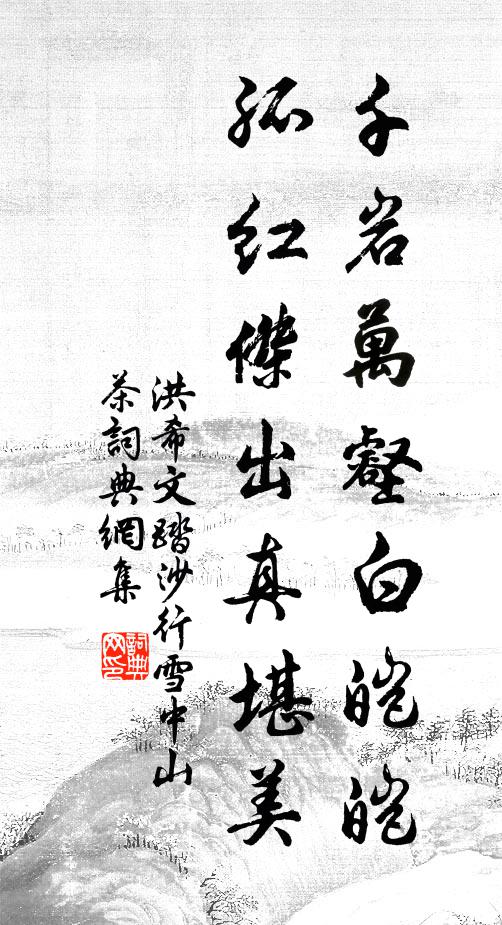 千岩萬壑白皑皑
孤红傑出真堪美
洪希文踏沙行雪中山
茶詞典網集
詞典网印